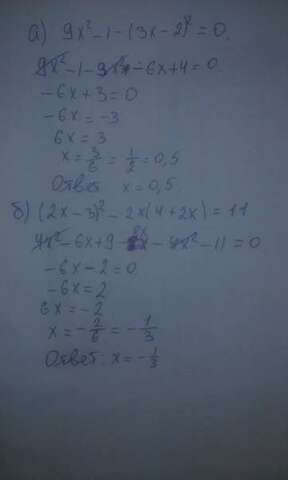 а) 9x² - 1 - (3x - 2)² = 0.
9x² - 1 - 9x² - 6x + 4 = 0
-6x + 3 = 0
-6x = -3
6x = 3
x = 3/6 = 1/2 = 0,5
Ответ x = 0,5
б) (2x - 3)² - 2x(4 + 2x) = 11
4x² - 6x + 9 - 8x - 4x² - 11 = 0
-6x - 2 = 0
-6x = 2
6x = -2
x = -2/6 = -1/3
Ответ: x = -1/3